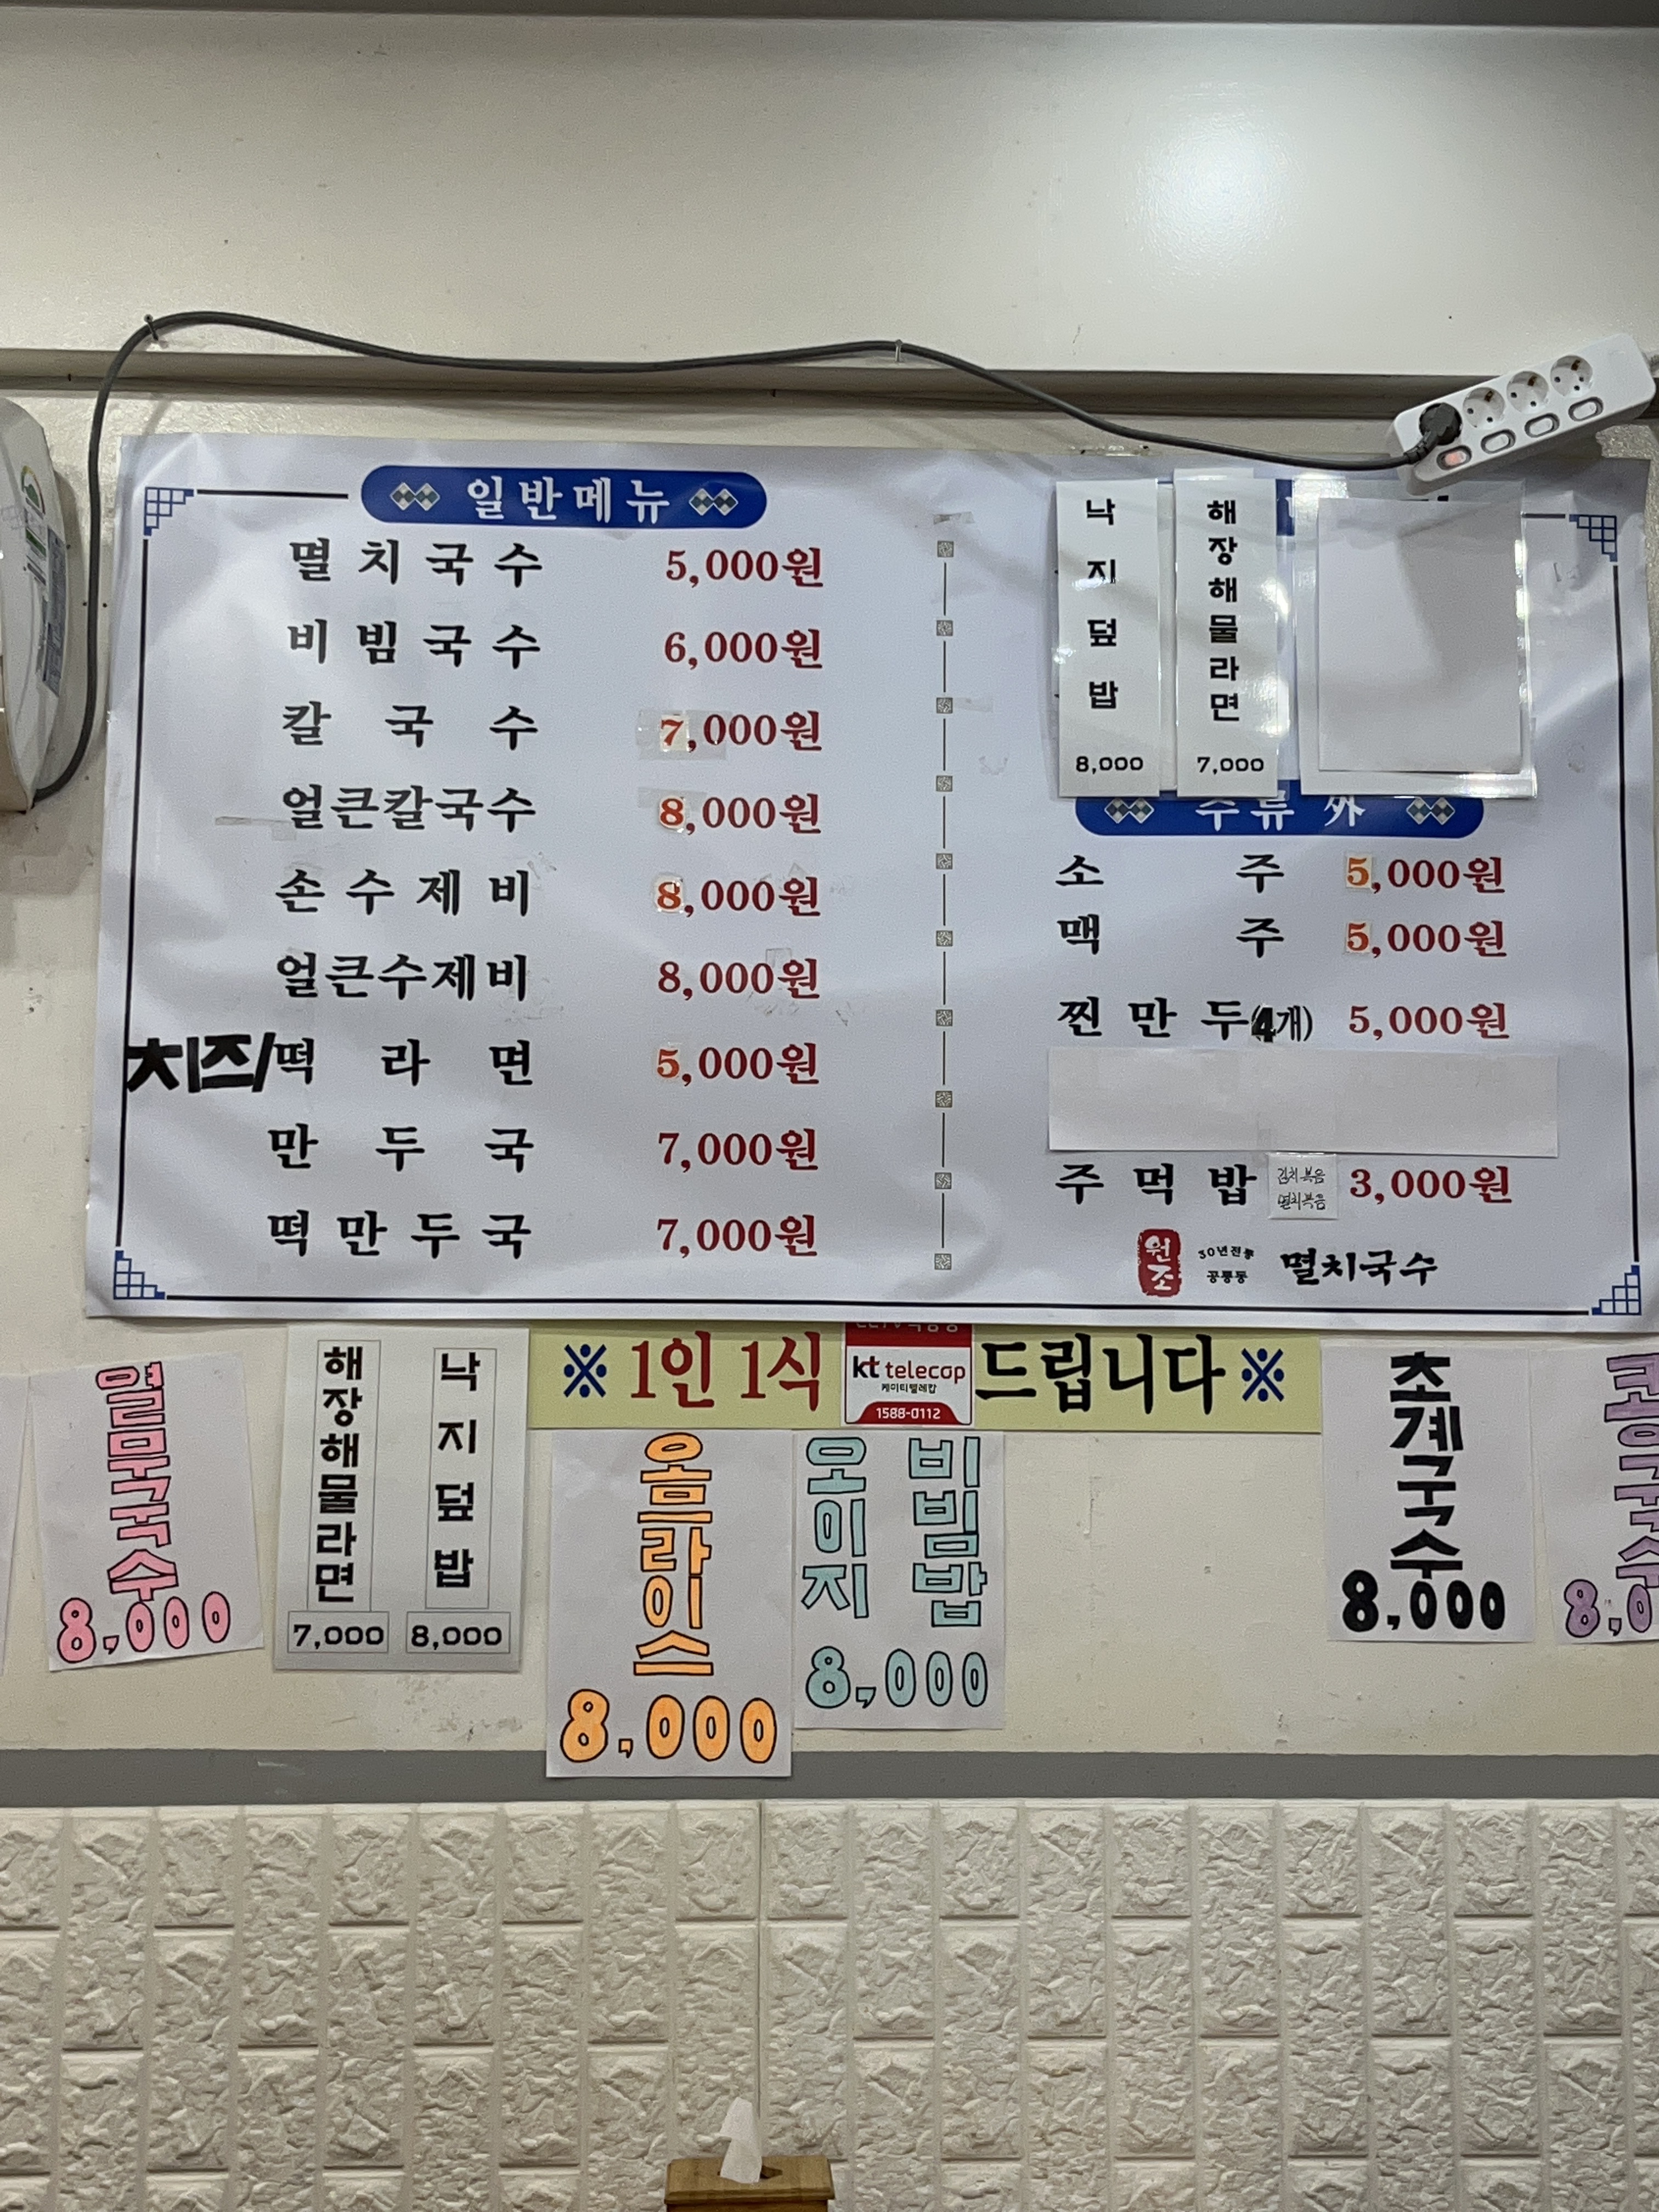 일반메뉴
멸치국수 5,000원
비빔국수 6,000원
칼국수 7,000원
얼큰칼국수 8,000원
손수제비 8,000원
얼큰수제비 8,000원
치즈/떡라면 5,000원
만두국 7,000원
떡만두국 7,000원
낙지덮밥
8,000
해장해물라면
7,000
주류 外
소주 5,000원
맥주 5,000원
찐만두(4개) 5,000원
주먹밥 김치볶음 멸치볶음 3,000원
원조 30년전통 공릉동 멸치국수
※ 1인 1식 드립니다 ※
kt telecop
케이티텔레캅
1588-0112
열무국수
8,000
해장해물라면
7,000
낙지덮밥
8,000
오므라이스
8,000
오이지 비빔밥
8,000
초계국수
8,000
콩국수